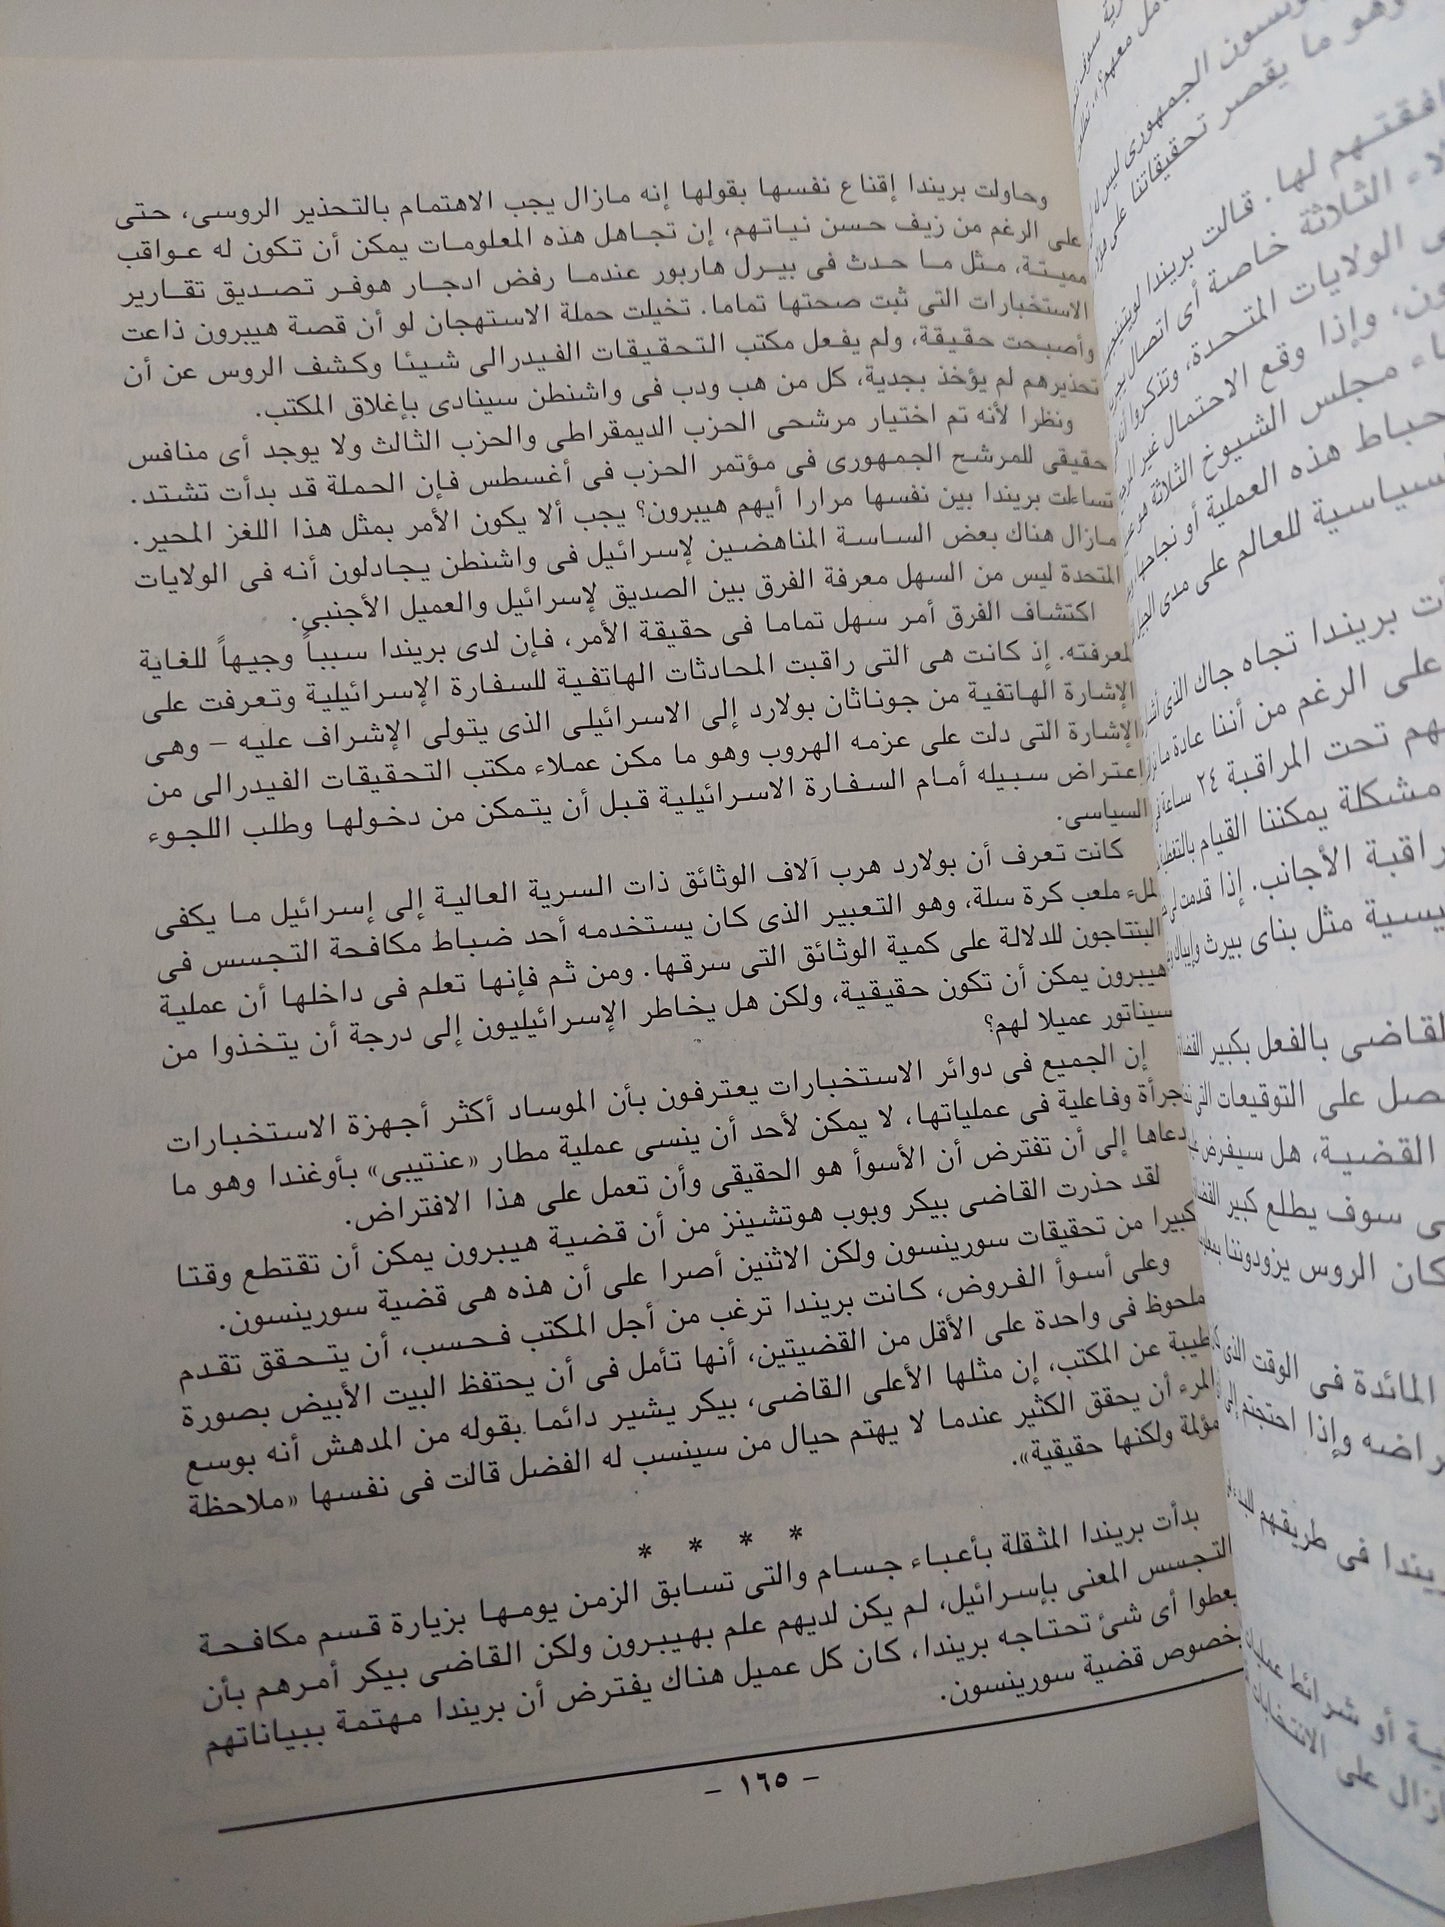 وحاولت بريندا إقناع نفسها بقولها إنه مازال يجب الاهتمام بالتحذير الروسى، حتى
على الرغم من زيف حسن نياتهم، إن تجاهل هذه المعلومات يمكن أن تكون له عواقب
مميتة، مثل ما حدث فى بيرل هاربور عندما رفض ادجار هوفر تصديق تقارير
الاستخبارات التى ثبت صحتها تماما. تخيلت حملة الاستهجان لو أن قصة هيبرون ذاعت
وأصبحت حقيقة، ولم يفعل مكتب التحقيقات الفيدرالى شيئا وكشف الروس عن أن
تحذيرهم لم يؤخذ بجدية، كل من هب ودب فى واشنطن سينادى بإغلاق المكتب.
ونظرا لأنه تم اختيار مرشحى الحزب الديمقراطى والحزب الثالث ولا يوجد أى منافس
حقيقى للمرشح الجمهورى فى مؤتمر الحزب فى أغسطس فإن الحملة قد بدأت تشتد.
تساءلت بريندا بين نفسها مرارا أيهم هيبرون؟ يجب ألا يكون الأمر بمثل هذا اللغز المحير.
مازال هناك بعض الساسة المناهضين لإسرائيل فى واشنطن يجادلون أنه فى الولايات
المتحدة ليس من السهل معرفة الفرق بين الصديق لإسرائيل والعميل الأجنبى.
اكتشاف الفرق أمر سهل تماما فى حقيقة الأمر، فإن لدى بريندا سبباً وجيهاً للغاية
لمعرفته. إذ كانت هى التى راقبت المحادثات الهاتفية للسفارة الإسرائيلية وتعرفت على
الإشارة الهاتفية من جوناثان بولارد إلى الاسرائيلى الذى يتولى الإشراف عليه – وهى
الإشارة التى دلت على عزمه الهروب وهو ما مكن عملاء مكتب التحقيقات الفيدرالى من
اعتراض سبيله أمام السفارة الاسرائيلية قبل أن يتمكن من دخولها وطلب اللجوء
السياسى.
كانت تعرف أن بولارد هرب آلاف الوثائق ذات السرية العالية إلى إسرائيل ما يكفى
لملء ملعب كرة سلة، وهو التعبير الذى كان يستخدمه أحد ضباط مكافحة التجسس فى
البنتاجون للدلالة على كمية الوثائق التى سرقها. ومن ثم فإنها تعلم فى داخلها أن عملية
هيبرون يمكن أن تكون حقيقية، ولكن هل يخاطر الإسرائيليون إلى درجة أن يتخذوا من
سيناتور عميلا لهم؟
إن الجميع فى دوائر الاستخبارات يعترفون بأن الموساد أكثر أجهزة الاستخبارات
جرأة وفاعلية فى عملياتها، لا يمكن لأحد أن ينسى عملية مطار «عنتيبى» بأوغندا وهو ما
دعاها إلى أن تفترض أن الأسوأ هو الحقيقى وأن تعمل على هذا الافتراض.
لقد حذرت القاضى بيكر وبوب هوتشينز من أن قضية هيبرون يمكن أن تقتطع وقتا
كبيرا من تحقيقات سورينسون ولكن الاثنين أصرا على أن هذه هى قضية سورينسون.
وعلى أسوأ الفروض، كانت بريندا ترغب من أجل المكتب فحسب، أن يتحقق تقدم
ملحوظ فى واحدة على الأقل من القضيتين، أنها تأمل فى أن يحتفظ البيت الأبيض بصورة
طيبة عن المكتب، إن مثلها الأعلى القاضى، بيكر يشير دائما بقوله من المدهش أنه بوسع
المرء أن يحقق الكثير عندما لا يهتم حيال من سينسب له الفضل قالت فى نفسها «ملاحظة
مؤلمة ولكنها حقيقية».
* * * *
بدأت بريندا المثقلة بأعباء جسام والتى تسابق الزمن يومها بزيارة قسم مكافحة
التجسس المعنى بإسرائيل، لم يكن لديهم علم بهيبرون ولكن القاضى بيكر أمرهم بأن
يعطوا أى شئ تحتاجه بريندا، كان كل عميل هناك يفترض أن بريندا مهتمة ببياناتهم
بخصوص قضية سورينسون.
– ١٦٥ –
وهو ما يقصر تحقيقاتنا على
افقتهم لها. قالت بريندا
لاء الثلاثة خاصة أى اتصال
ى الولايات المتحدة، وتذكروا أن
ون، وإذا وقع الاحتمال غير
اء مجلس الشيوخ الثلاثة هو
حباط هذه العملية أو نجاحها
سياسية للعالم على مدى
ت بريندا تجاه جاك الذى
على الرغم من أننا عادة ما
هم تحت المراقبة ٢٤ ساعة
مشكلة يمكننا القيام
راقبة الأجانب. إذا قدمت
يسية مثل بناى بيرث
لقاضى بالفعل بكبير
صل على التوقيعات التى
القضية، هل سيفرض
ى سوف يطلع كبير
كان الروس يزودوننا
المائدة فى الوقت الذى
راضه وإذا احتجتم إلى
يندا فى طريقهم
ية أو شرائط
ازال على الانتخابات